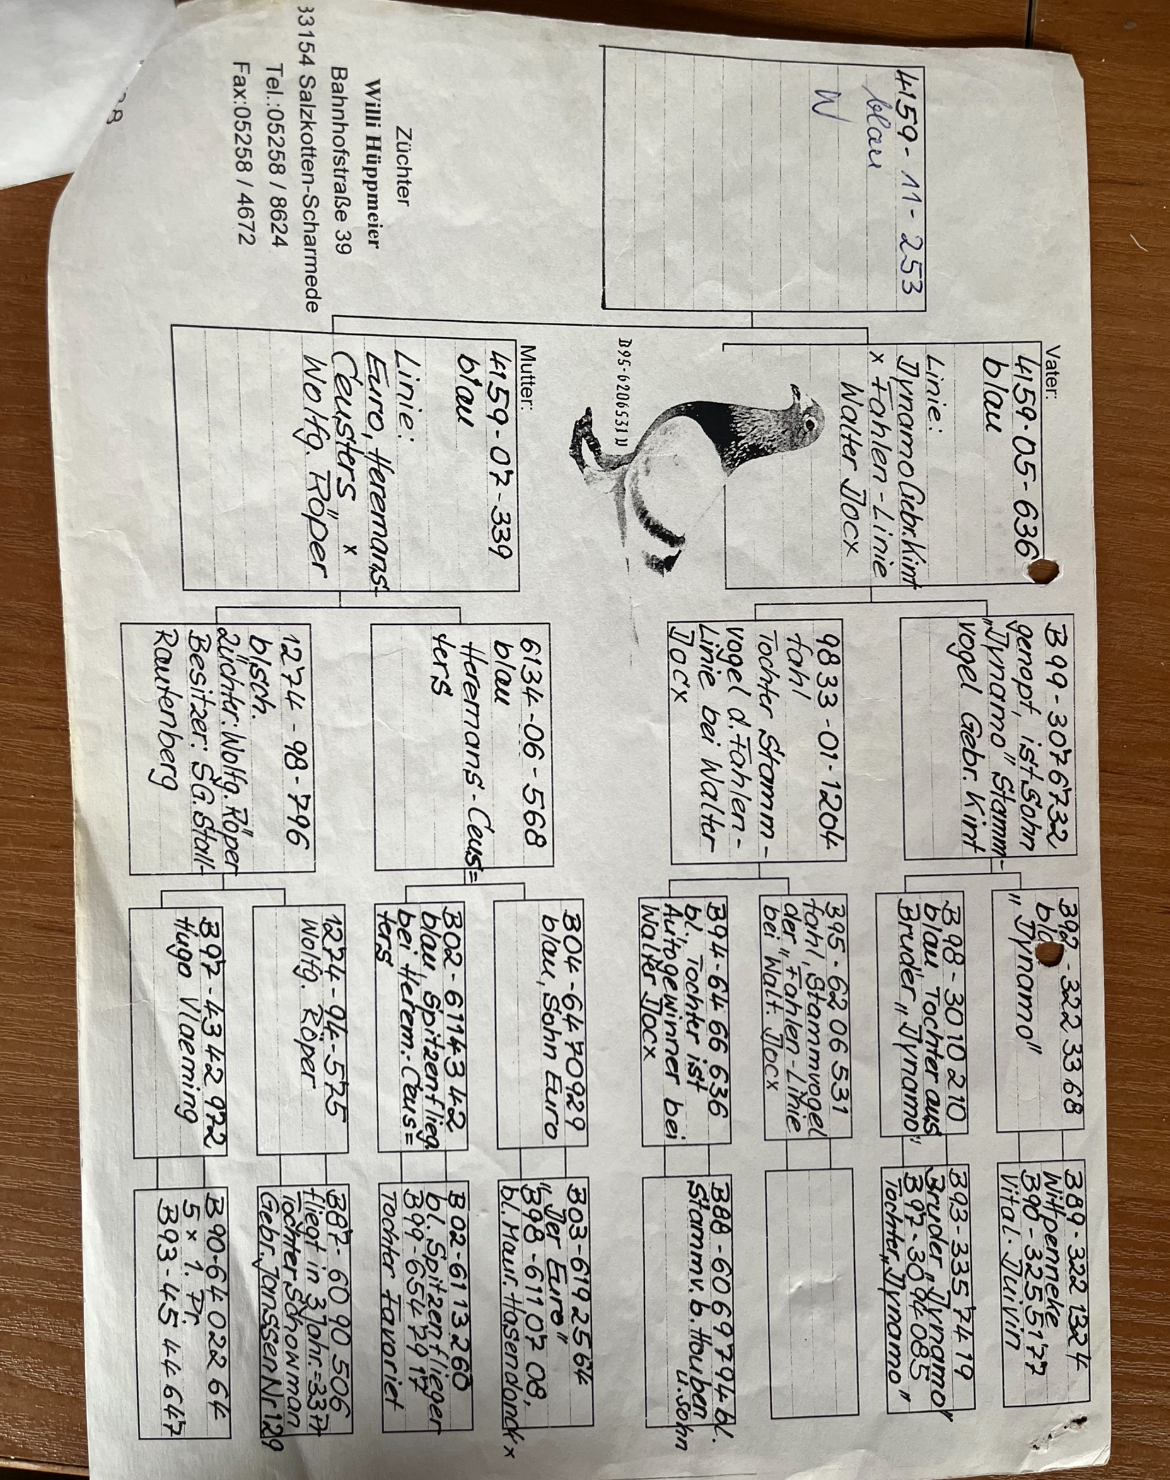 4159-11-253
blau
W
Züchter
Willi Hüppmeier
Bahnhofstraße 39
33154 Salzkotten-Scharmede
Tel.:05258 / 8624
Fax:05258 / 4672
Vater:
4159-05-636
blau
Linie:
Dynamo Gebr. Kint
x Fahlen-Linie
Walter Docx
B95-6206531 V
Mutter:
4159-07-339
blau
Linie:
Euro, Heremans-
Ceusters x
Wolfg. Röper
B99-3076732
genopt, ist Sohn
"Dynamo" Stamm-
vogel Gebr. Kint
9833-01-1204
fahl
Tochter Stamm-
vogel d. Fahlen-
Linie bei Walter
Docx
6134-06-568
blau
Heremans-Ceus=
ters
1274-98-796
blsch.
Züchter: Wolfg. Röper
Besitzer: SG. Stall-
Rautenberg
B92-3223368
"Dynamo"
B98-3010210
blau Tochter aus
Bruder "Dynamo"
B95-6206531
fahl, Stammvogel
der "Fahlen-Linie
bei Walt. Docx
B94-6466636
bl, Tochter ist
Autogewinner bei
Walter Docx
B04-6470929
blau, Sohn Euro
B02-6114342
blau, Spitzenflieg.
bei Herem.-Ceus=
ters
1274-94-575
Wolfg. Röper
B97-4342972
Hugo Vlaeming
B89-3221324
Nittpenneke
B90-3255177
Vital. Duivin
B93-3357419
Bruder "Dynamo"
B97-3094085
Tochter "Dynamo"
B88-6069794 bl.
Stammv. b. Houben
u. Sohn
B03-6192564
"Der Euro"
B98-6110708,
bl. Maur. Hasendonckx
B02-6113260
bl. Spitzenflieger
B99-6547917
Tochter Favoriet
B87-6090506
fliegt in 3 Jahr.=33 Pr
Tochter Schowman
Gebr. Janssen Nr 129
B90-6402264
5 x 1. Pr.
B93-4544647